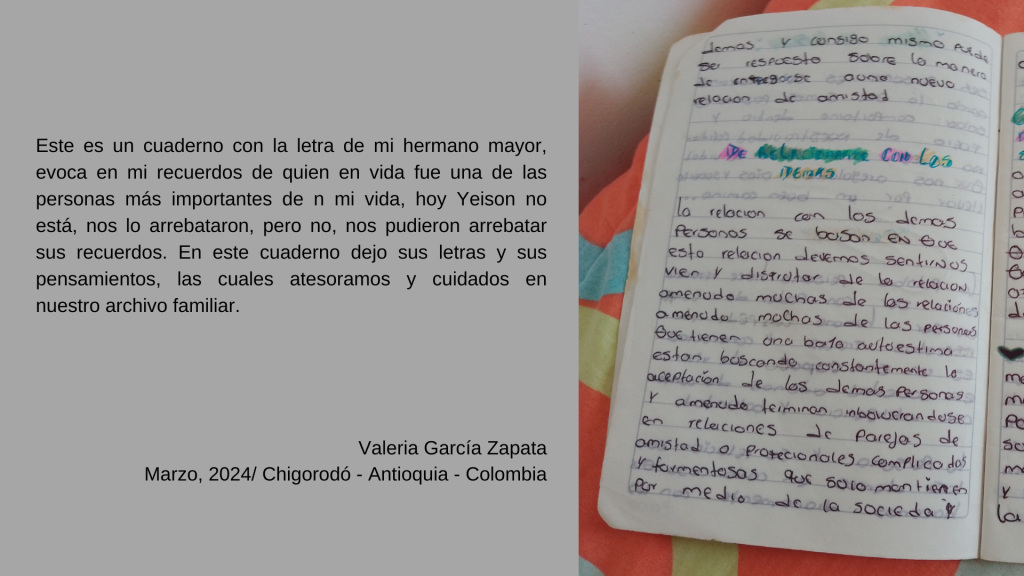 Este es un cuaderno con la letra de mi hermano mayor,
evoca en mi recuerdos de quien en vida fue una de las
personas más importantes de n mi vida, hoy Yeison no
está, nos lo arrebataron, pero no, nos pudieron arrebatar
sus recuerdos. En este cuaderno dejo sus letras y sus
pensamientos, las cuales atesoramos y cuidados en
nuestro archivo familiar.
Valeria García Zapata
Marzo, 2024/ Chigorodó - Antioquia - Colombia
demas y consigo mismo puede
ser respuesto sobre la manera
de auna nuevo
relacion de amistad
De Con Los
la relacion con los demas
Personas se basan EN Que
esta relacion devemos sentirnos
vien y disfrutar de la relacion
amenudo muchas de las relaciones
amenudo muchas de las personas
Que tienen una baja autoestima
estan buscando constantemente la
aceptación de los demas Personas
y amenudo terminan inbolucrandose
en relaciones de Parejas de
amistad o profecionales complicadas
y tormentosas que solo mantienen
Por medio de la sociedad y